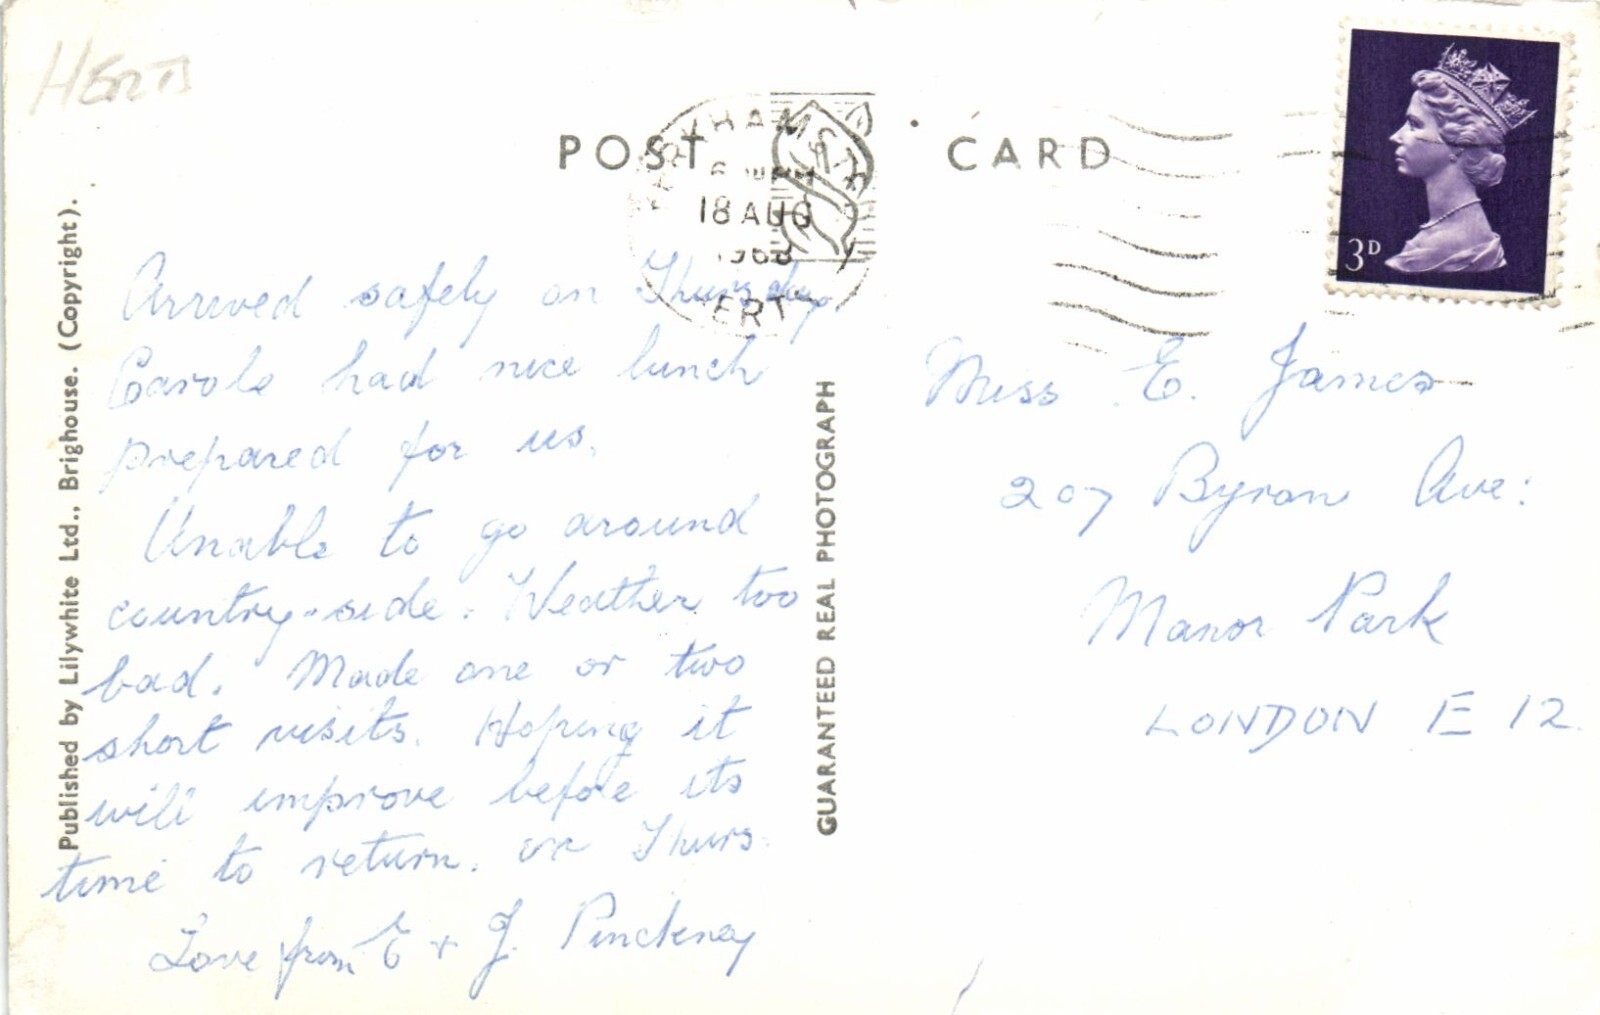 HERTS
POST CARD
18 AUG
1968
HERTS
3D
Published by Lilywhite Ltd., Brighouse. (Copyright).
GUARANTEED REAL PHOTOGRAPH
Arrived safely on Thursday.
Carole had nice lunch
prepared for us.
Unable to go around
country-side. Weather too
bad. Made one or two
short visits. Hoping it
will improve before its
time to return. on Thurs.
Love from E + J. Pinckney
Miss E. James
207 Byron Ave:
Manor Park
LONDON E 12.